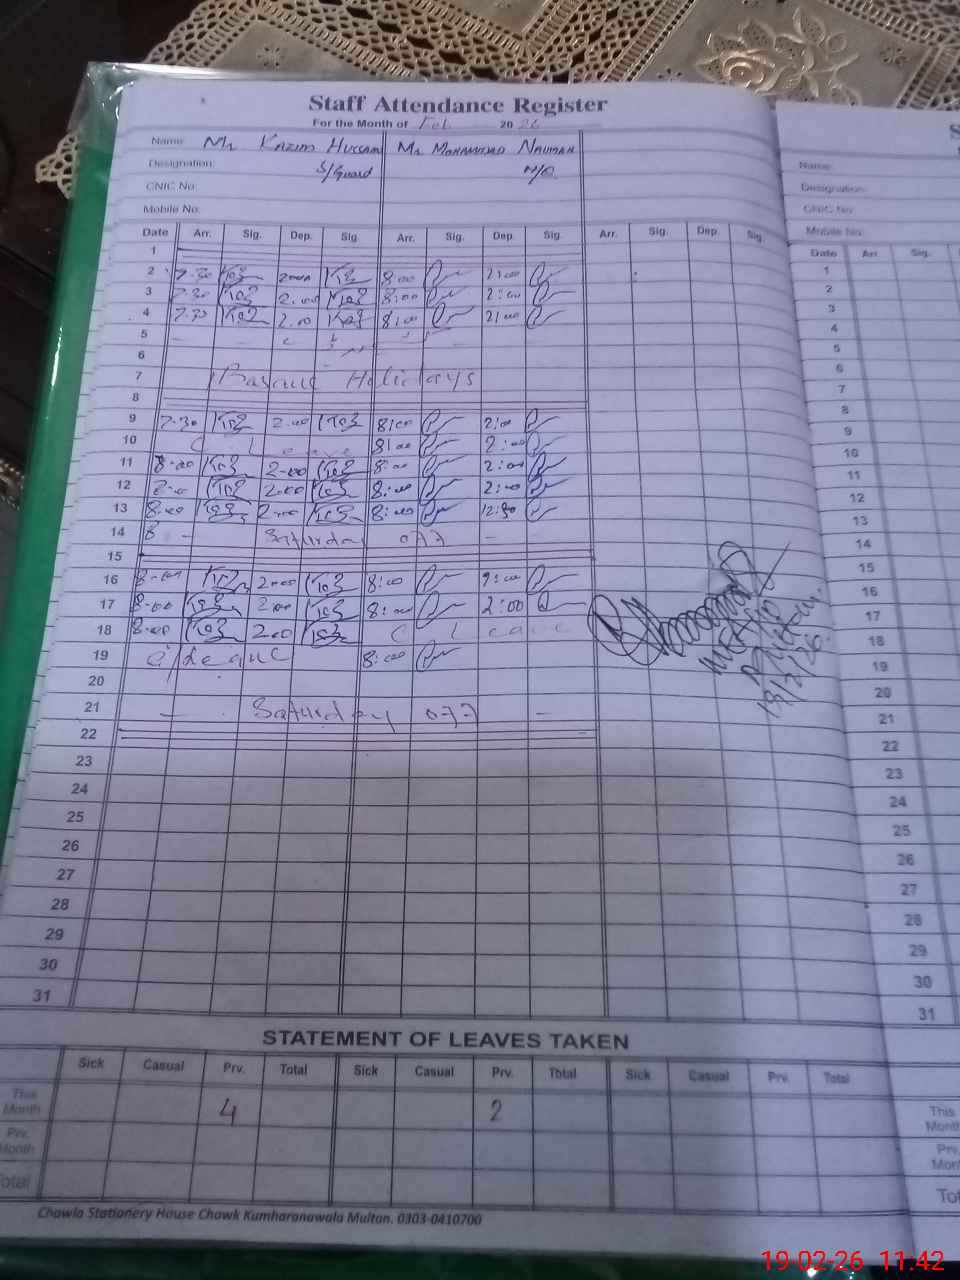 Staff Attendance Register
For the Month of Feb 2026
Name: Mr Kazim Hussain Mr Mohammad Nauman
Designation: S/Guard N/Q
CNIC No:
Mobile No:
Date Arr. Sig. Dep. Sig Arr. Sig. Dep. Sig. Arr. Sig. Dep. Sig.
1
2 7.30 2.00 8:00 2:00
3 7.30 2.00 8:00 2:00
4 7.30 2.00 8:00 2:00
5
6
7 Basant Holidays
8
9 7.30 2.00 8:00 2:00
10 C Leave 8:00 2:00
11 8-00 2-00 8:00 2:00
12 8-00 2.00 8:00 2:00
13 8.00 2.00 8:00 12:30
14 Saturday off
15
16 8-00 2-00 8:00 2:00
17 8-00 2.00 8:00 2:00
18 8-00 2.00 C Leave
19 C/Leave 8:00
20
21 Saturday off
22
23
24
25
26
27
28
29
30
31
19/2/26
STATEMENT OF LEAVES TAKEN
Sick Casual Prv. Total Sick Casual Prv. Total Sick Casual Prv. Total
This Month 4 2
Prv. Month
Total
Chawla Stationery House Chowk Kumharanawala Multan. 0303-0410700
S
Name:
Designation:
CNIC No:
Mobile No:
Date Arr. Sig.
1
2
3
4
5
6
7
8
9
10
11
12
13
14
15
16
17
18
19
20
21
22
23
24
25
26
27
28
29
30
31
This
Month
Prv.
Mon
Tot
19-02-26 11:42